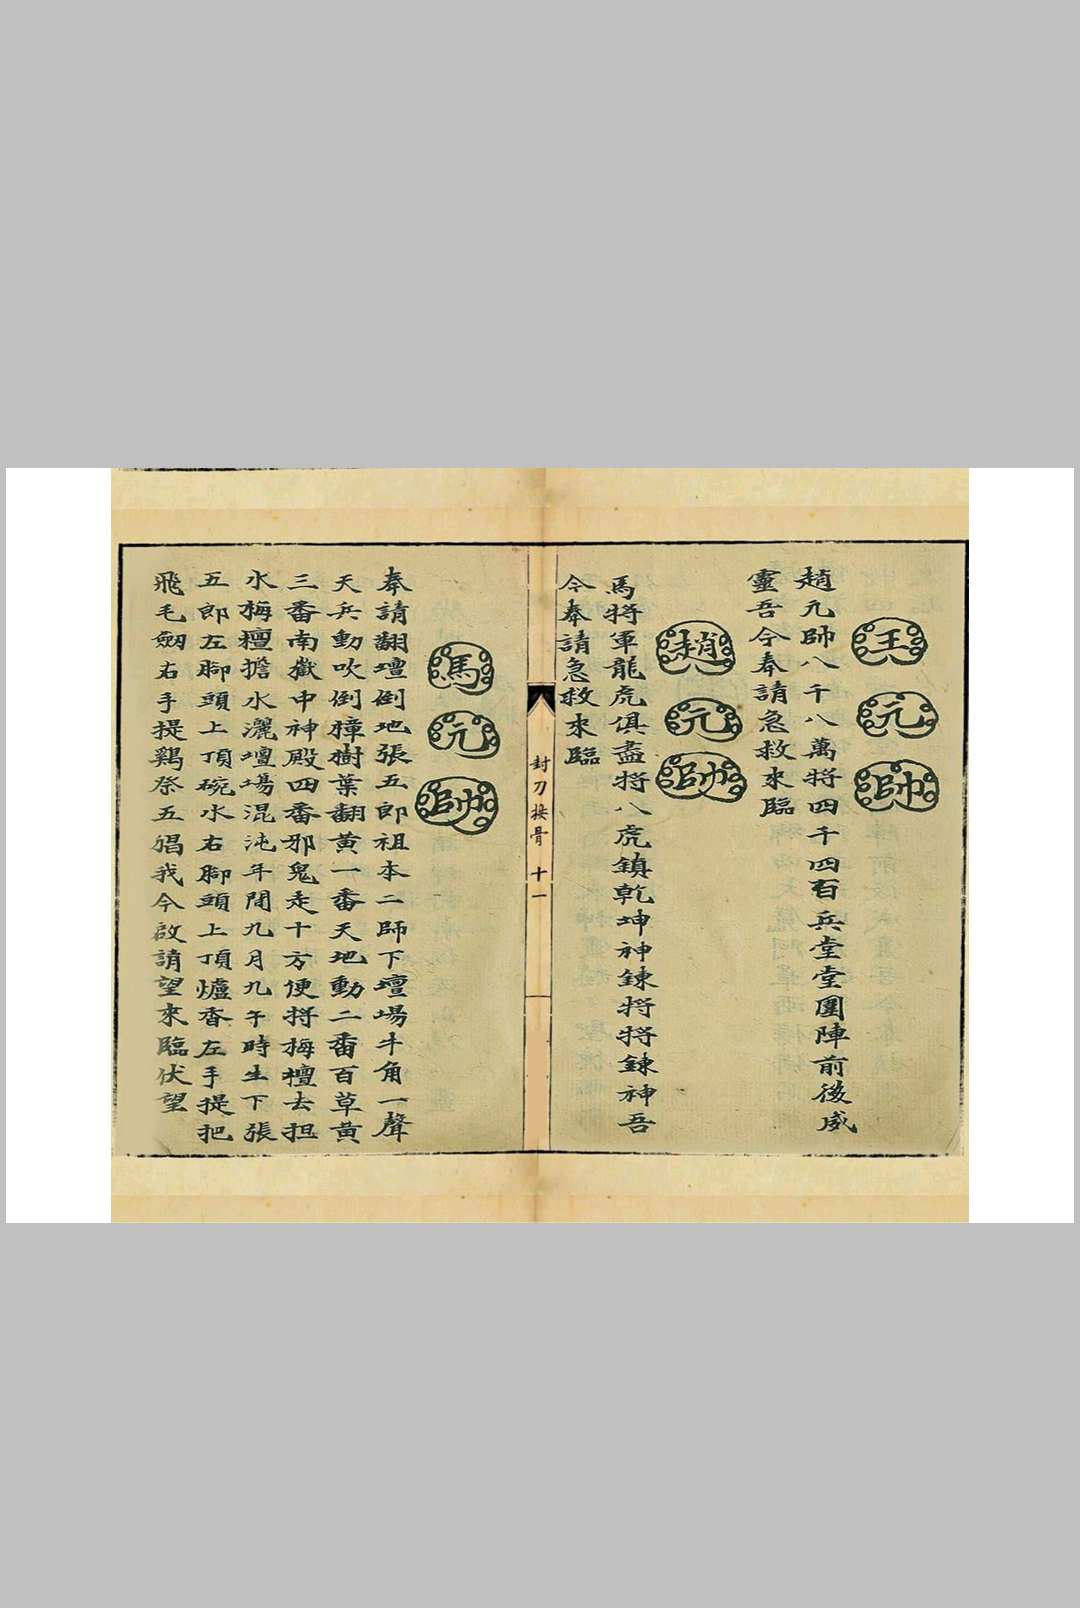 王元帥
趙元帥八千八萬將四千四百兵堂堂團陣前後威
靈吾今奉請急救來臨
趙元帥
馬將軍龍虎俱盡將八虎鎮乾坤神鍊將將鍊神吾
今奉請急救來臨
封刀接骨 十一
馬元帥
奉請翻壇倒地張五郎祖本二師下壇場牛角一聲
天兵動吹倒樟樹葉翻黃一番天地動二番百草黃
三番南嶽中神殿四番邪鬼走十方便將梅檀去担
水梅檀擔水灑壇場混沌年間九月九午時生下張
五郎左腳頭上頂碗水右腳頭上頂爐香左手提把
飛毛劍右手提鷄祭五猖我今啟請望來臨伏望